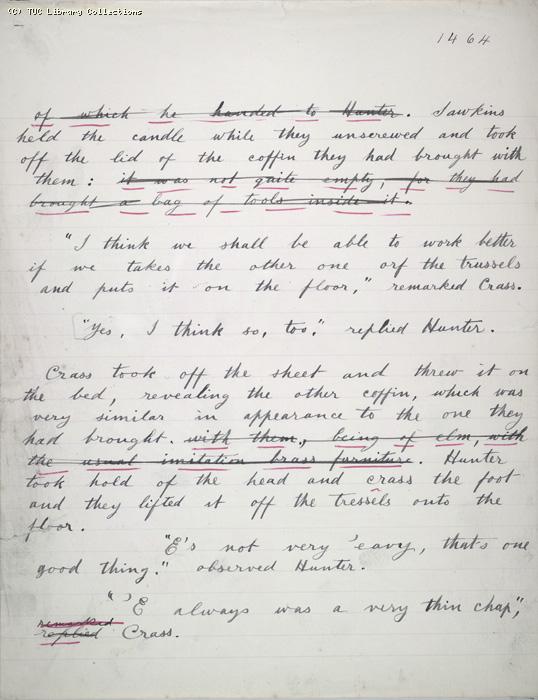 (C) TUC Library Collections
1464
of which he handed to Hunter. Sawkins
held the candle while they unscrewed and took
off the lid of the coffin they had brought with
them: it was not quite empty, for they had
brought a bag of tools inside it.
"I think we shall be able to work better
if we takes the other one orf the trussels
and puts it on the floor," remarked Crass.
"Yes, I think so, too." replied Hunter.
Crass took off the sheet and threw it on
the bed, revealing the other coffin, which was
very similar in appearance to the one they
had brought. with them., being of elm, with
the usual imitation brass furniture. Hunter
took hold of the head and crass the foot
and they lifted it off the tressels onto the
floor.
"E's not very 'eavy, that's one
good thing." observed Hunter.
"'E always was a very thin chap",
remarked
replied Crass.